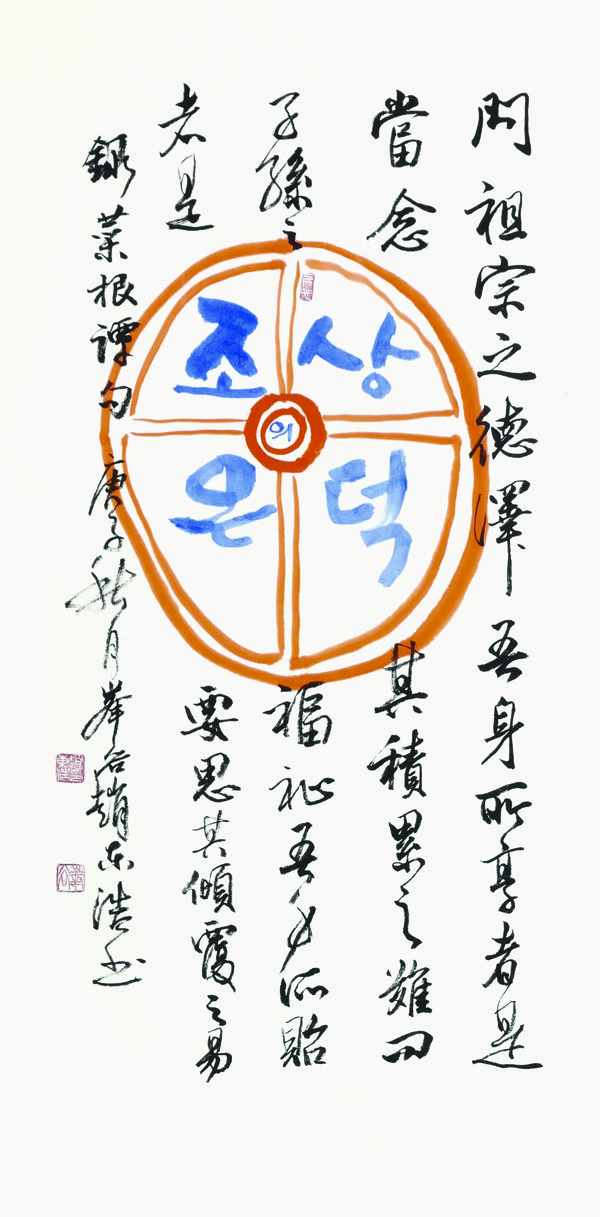 問祖宗之德澤吾身所享者是
當念其積累之難問
子孫之福祉吾身所貽
者是要思其傾覆之易
錄菜根譚句 庚子秋月 峯 趙東浩書
조상
의
은덕